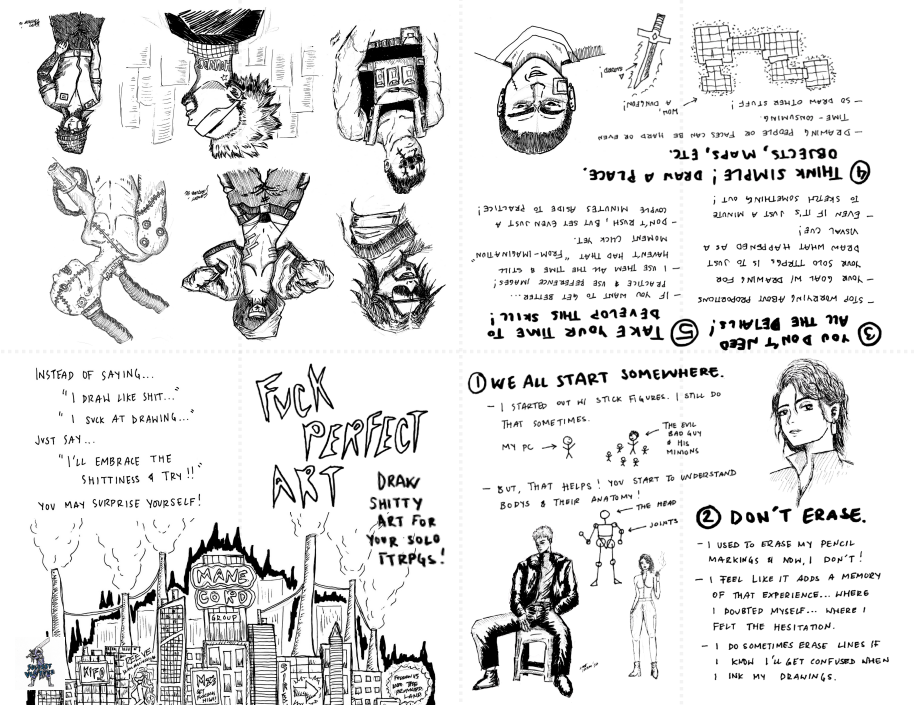 INSTEAD OF SAYING...
"I DRAW LIKE SHIT..."
"I SUCK AT DRAWING..."
JUST SAY...
"I'LL EMBRACE THE
SHITTINESS & TRY!!"
YOU MAY SURPRISE YOURSELF!
FUCK
PERFECT
ART
DRAW
SHITTY
ART FOR
YOUR SOLO
TTRPGS!
MANE
CORD
GROUP
① WE ALL START SOMEWHERE.
- I STARTED OUT W/ STICK FIGURES. I STILL DO
THAT SOMETIMES.
MY PC →
THE EVIL
BAD GUY
& HIS
MINIONS
- BUT, THAT HELPS! YOU START TO UNDERSTAND
BODYS & THEIR ANATOMY!
THE HEAD
JOINTS
② DON'T ERASE.
- I USED TO ERASE MY PENCIL
MARKINGS & NOW, I DON'T!
- I FEEL LIKE IT ADDS A MEMORY
OF THAT EXPERIENCE... WHERE
I DOUBTED MYSELF... WHERE I
FELT THE HESITATION.
- I DO SOMETIMES ERASE LINES IF
I KNOW I'LL GET CONFUSED WHEN
I INK MY DRAWINGS.
③ YOU DON'T NEED
ALL THE DETAILS!
- STOP WORRYING ABOUT PROPORTIONS
- YOUR GOAL W/ DRAWING FOR
YOUR SOLO TTRPGS IS TO JUST
DRAW WHAT HAPPENED AS A
VISUAL CUE!
- EVEN IF IT'S JUST A MINUTE
TO SKETCH SOMETHING OUT!
④ THINK SIMPLE! DRAW A PLACE,
OBJECTS, MAPS, ETC.
- DRAWING PEOPLE OR FACES CAN BE HARD OR EVEN
TIME-CONSUMING.
- SO DRAW OTHER STUFF!
WOW,
A DUNGEON!
A SWORD!
⑤ TAKE YOUR TIME TO
DEVELOP THIS SKILL!
- IF YOU WANT TO GET BETTER...
PRACTICE & USE REFERENCE IMAGES!
- I USE THEM ALL THE TIME & STILL
HAVEN'T HAD THAT "FROM-IMAGINATION"
MOMENT CLICK YET.
- DON'T RUSH, BUT SET EVEN JUST A
COUPLE MINUTES ASIDE TO PRACTICE!